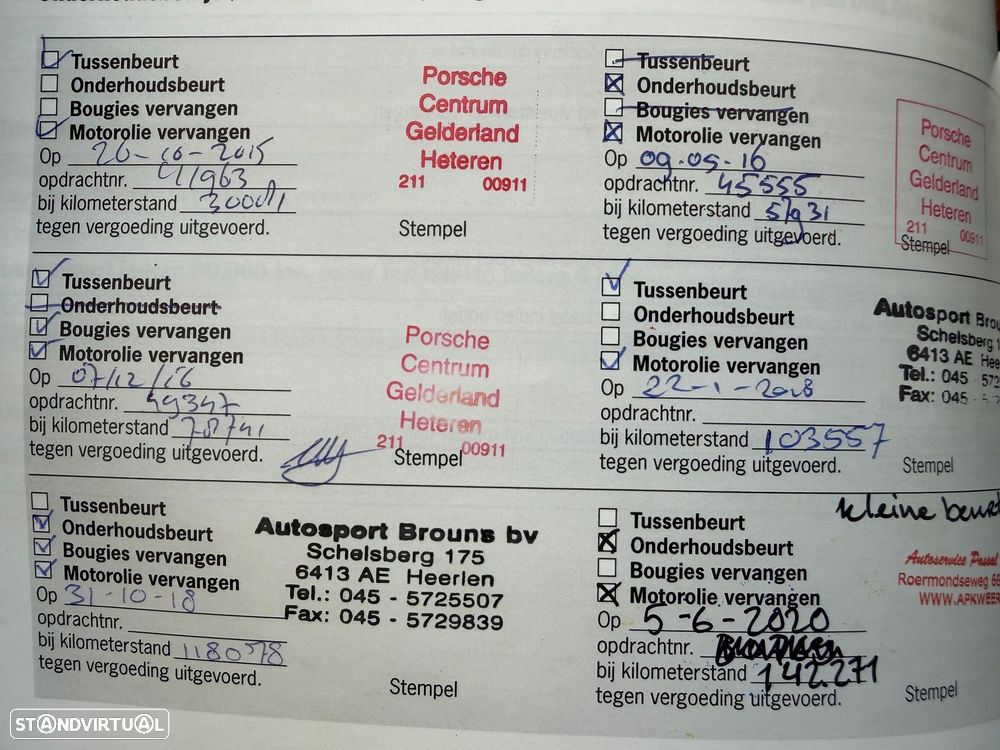 Tussenbeurt
Onderhoudsbeurt
Bougies vervangen
Motorolie vervangen
Op 20-10-2015
opdrachtnr. 41963
bij kilometerstand
tegen vergoeding uitgevoerd.
Porsche
Centrum
Gelderland
Heteren
211 00911
Stempel
Tussenbeurt
Onderhoudsbeurt
Bougies vervangen
Motorolie vervangen
Op 09.05-16
opdrachtnr. 45555
bij kilometerstand 57931
tegen vergoeding uitgevoerd.
Porsche
Centrum
Gelderland
Heteren
211 00911
Stempel
Tussenbeurt
Onderhoudsbeurt
Bougies vervangen
Motorolie vervangen
Op 07/12/16
opdrachtnr. 49347
bij kilometerstand 78741
tegen vergoeding uitgevoerd.
Porsche
Centrum
Gelderland
Heteren
211 00911
Stempel
Tussenbeurt
Onderhoudsbeurt
Bougies vervangen
Motorolie vervangen
Op 22-1-2018
opdrachtnr.
bij kilometerstand 103557
tegen vergoeding uitgevoerd.
Autosport Brou
Schelsberg 1
6413 AE Hee
Tel.: 045 - 572
Fax: 045 - 5
Stempel
Tussenbeurt
Onderhoudsbeurt
Bougies vervangen
Motorolie vervangen
Op 31-10-18
opdrachtnr.
bij kilometerstand 118078
tegen vergoeding uitgevoerd.
Autosport Brouns bv
Schelsberg 175
6413 AE Heerlen
Tel.: 045 - 5725507
Fax: 045 - 5729839
Stempel
kleine beurt
Tussenbeurt
Onderhoudsbeurt
Bougies vervangen
Motorolie vervangen
Op 5-6-2020
opdrachtnr.
bij kilometerstand 142.271
tegen vergoeding uitgevoerd.
Autoservice Pascal
Roermondseweg 66
WWW.APKWEER
Stempel
STANDVIRTUAL